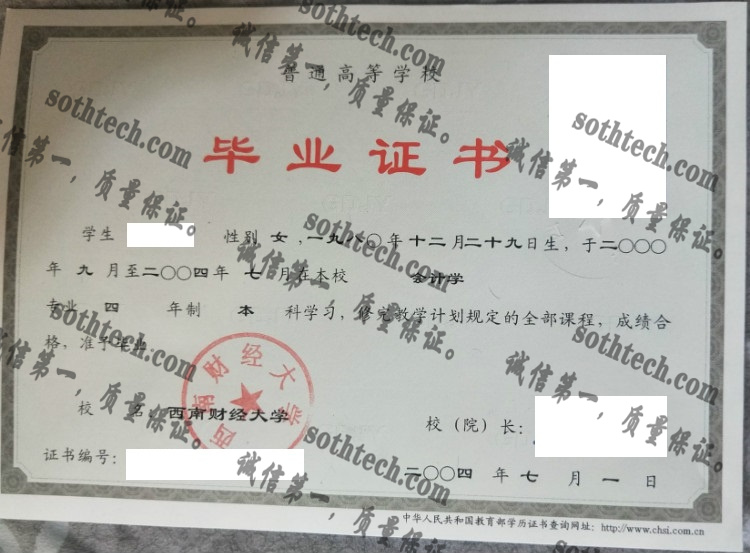 普通高等学校
毕业证书
学生 性别 女 ,一九八〇年 十二 月二十九日生, 于二〇〇〇
年 九 月至二〇〇四年 七 月在本校 会计学
专业 四 年制 本 科学习, 修完教学计划规定的全部课程, 成绩合
格, 准予毕业.
校 名: 西南财经大学
校（院）长:
证书编号:
二〇〇四 年 七 月 一 日
中华人民共和国教育部学历证书查询网址: http://www.chsi.com.cn
西南财经大学
sothtech.com
诚信第一，质量保证。
sothtech.com
诚信第一，质量保证。
sothtech.com
诚信第一，质量保证。
sothtech.com
诚信第一，质量保证。
sothtech.com
诚信第一，质量保证。
sothtech.com
诚信第一，质量保证。
sothtech.com
诚信第一，质量保证。
sothtech.com
诚信第一，质量保证。